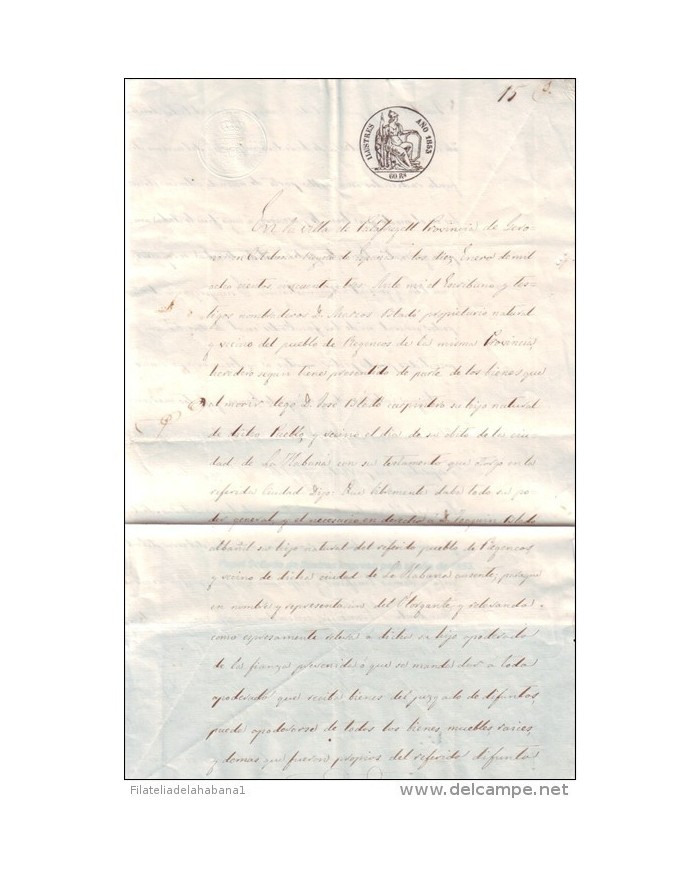 15
ILUSTRES AÑO 1853
60 Rs
En la Villa de Palafrugell Provincia de Gero-
na en Cataluña Reyno de España a los diez Enero de mil
ocho cientos cincuenta y tres. Ante mi el Escribano y tes-
tigos D. Marcos Blato propietario natural
y vecino del pueblo de Regencos de la misma Provincia,
heredero segun tiene presentido de parte de los bienes que
al morir dejó D. José Blato su hijo natural
de dicho Pueblo, y vecino el dia de su obito de la ciu-
dad de La Habana con su testamento que otorgó en la
referida Ciudad Dijo: Que libremente daba todo su po-
der general y el necesario en derecho á D. Joaquin Blato
albañil su hijo natural del referido pueblo de Regencos
y vecino de dicha ciudad de La Habana ausente, paraque
en nombre y representacion del Otorgante, y relevando
como espresamente releva á dicho su hijo apoderado
de la fianza prevenida ó que se mande dar á todo
apoderado que recibe bienes del juzgado de difuntos,
pueda apoderarse de todos los bienes, muebles raices,
y demas que fueron propios del referido difunto
Filateliadelahabana1
www.delcampe.net